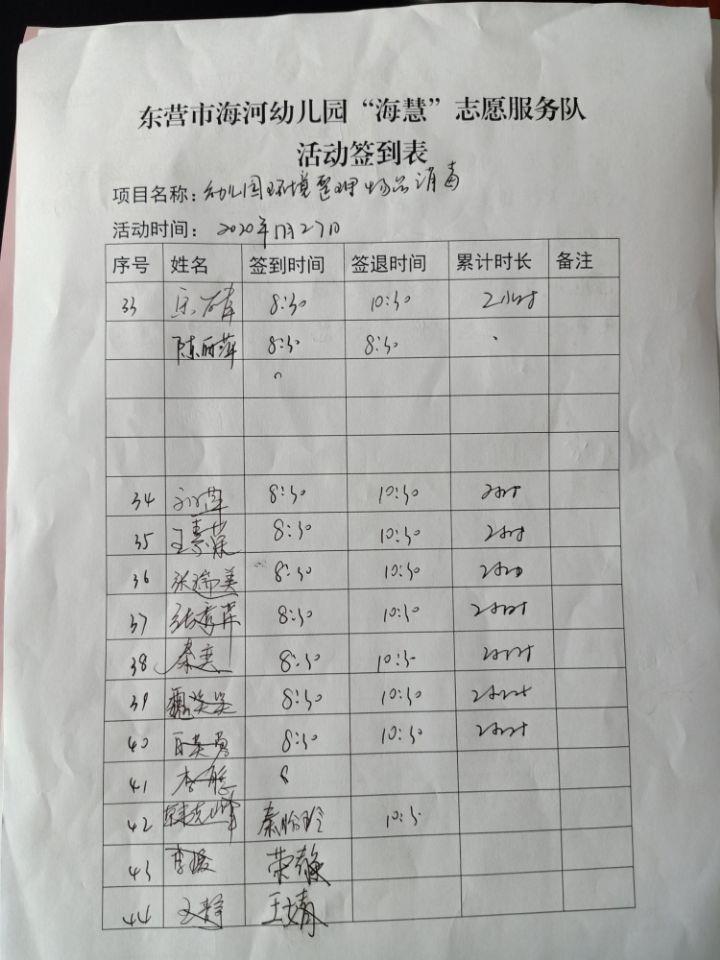 东营市海河幼儿园“海慧”志愿服务队
活动签到表
项目名称：幼儿园环境整理物品消毒
活动时间：2020年11月27日
序号 姓名 签到时间 签退时间 累计时长 备注
33 8:30 10:30 2小时
陈丽萍 8:30 8:30
34 刘萍 8:30 10:30 2小时
35 王素荣 8:30 10:30 2小时
36 张瑞美 8:30 10:30 2小时
37 张秀萍 8:30 10:30 2小时
38 8:30 10:30 2小时
39 8:30 10:30 2小时
40 8:30 10:30 2小时
41 李
42 秦盼玲 10:30
43 李媛 荣静
44 文静 王婧